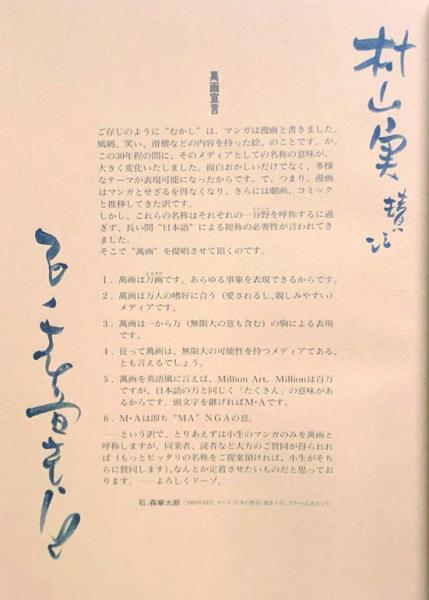 萬画宣言
ご存じのように“むかし”は、マンガは漫画と書きました。
風刺、笑い、滑稽などの内容を持った絵、のことです。が、
この30年程の間に、そのメディアとしての名称の意味が、
大きく変化いたしました。面白おかしいだけでなく、多様
なテーマが表現可能になったからです。で、つまり、漫画
はマンガとせざるを得なくなり、さらには劇画、コミック
と推移してきた訳です。
しかし、これらの名称はそれぞれの一分野を呼称するに過
ぎず、長い間“日本語”による総称の必要性が言われてき
ました。
そこで“萬画”を提唱させて頂くのです。
1．萬画は万画です。あらゆる事象を表現できるからです。
2．萬画は万人の嗜好に合う（愛されるし、親しみやすい）
メディアです。
3．萬画は一から万（無限大の意も含む）の駒による表現
です。
4．従って萬画は、無限大の可能性を持つメディアである、
とも言えるでしょう。
5．萬画を英語風に言えば、Million Art。Millionは百万
ですが、日本語の万と同じく「たくさん」の意味があ
るからです。頭文字を継げればM・Aです。
6．M・Aは即ち“MA”NGAの意。
――という訳で、とりあえずは小生のマンガのみを萬画と
呼称しますが、同業者、読者など大方のご賛同が得られれ
ば（もっとピッタリの名称をご提案頂ければ、小生がそち
らに賛同します）、なんとか定着させたいものだと思ってお
ります。――よろしくドーゾ。
石ノ森章太郎
村山実